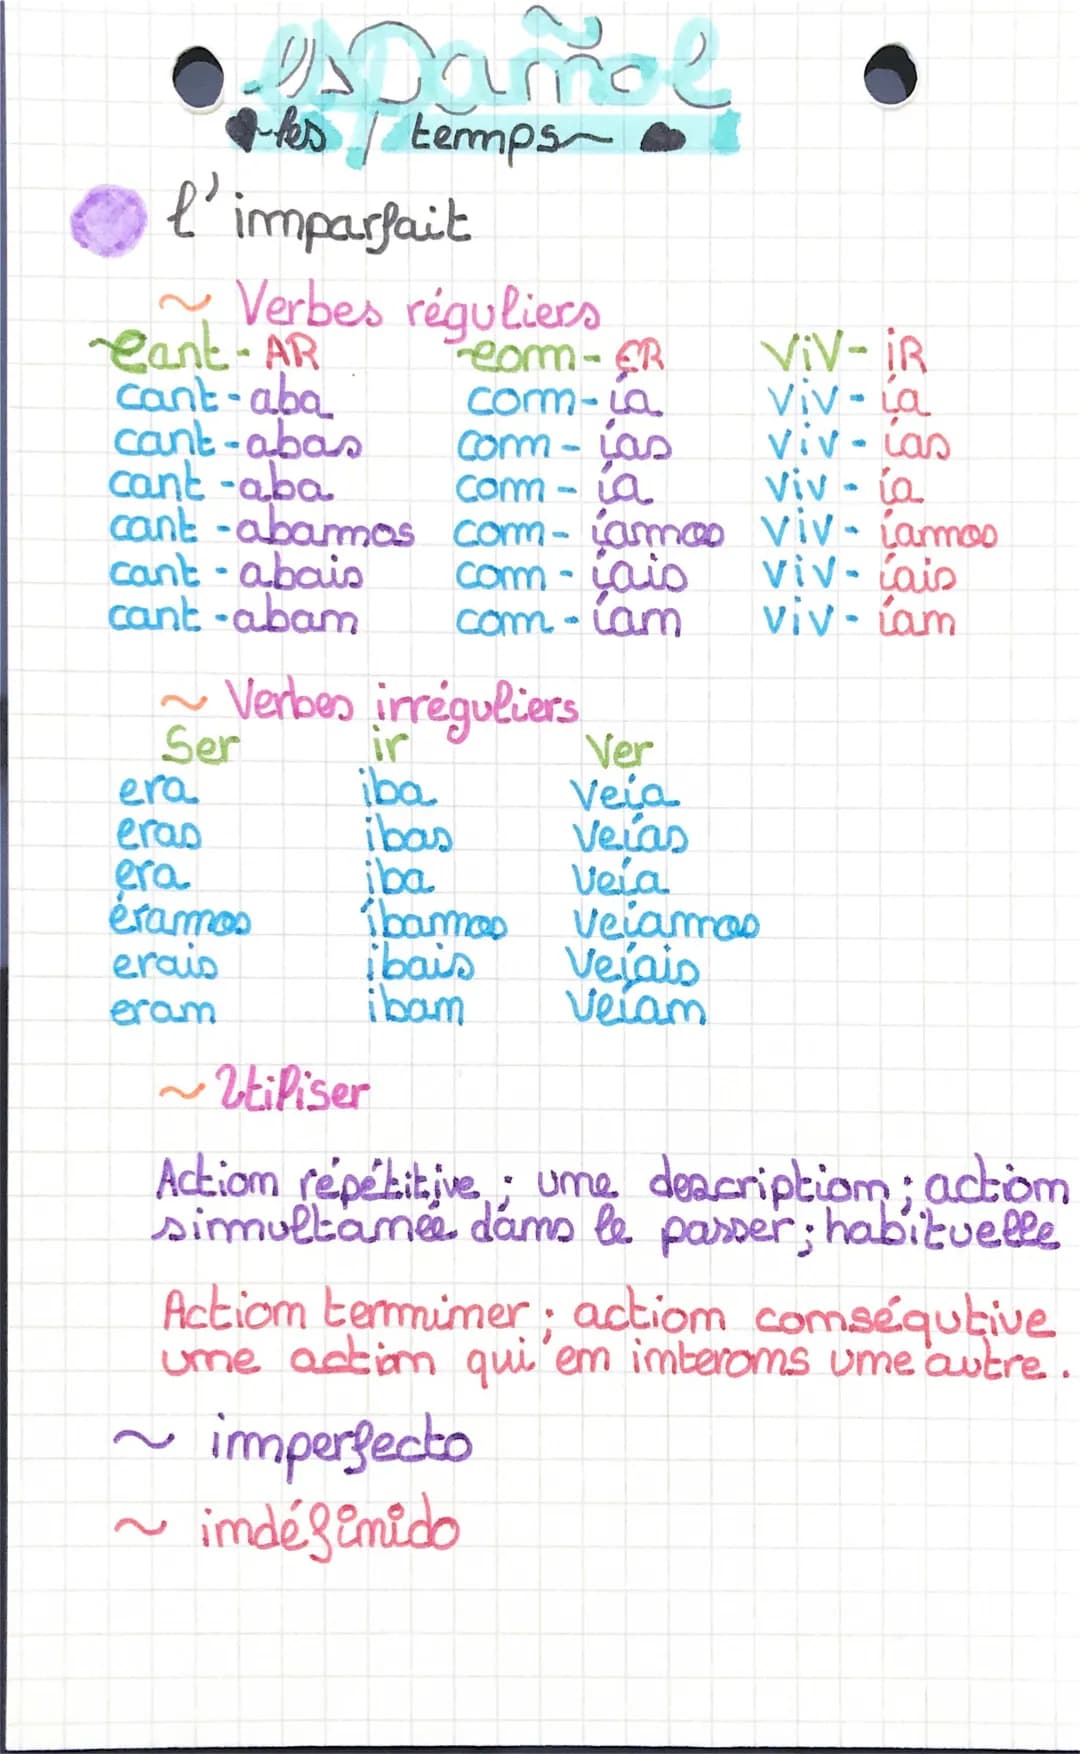 español
les temps
l'imparfait
~ Verbes réguliers
Cant-AR com-ER ViV-iR
cant-aba com-ía viv-ía
cant-abas com-ías viv-ías
cant-aba com-ía viv-ía
cant-abamos com-íamos viv-íamos
cant-abais com-íais viv-íais
cant-aban com-ían viv-ían
~ Verbes irréguliers
Ser ir Ver
era iba veía
eras ibas veías
era iba veía
éramos íbamos veíamos
erais ibais veíais
eran iban veían
~ Utiliser
Action répétitive ; une description ; action
simultanée dans le passer ; habituelle
Action terminer ; action conséqutive
une action qui en interons une autre.
~ imperfecto
~ indéfinido